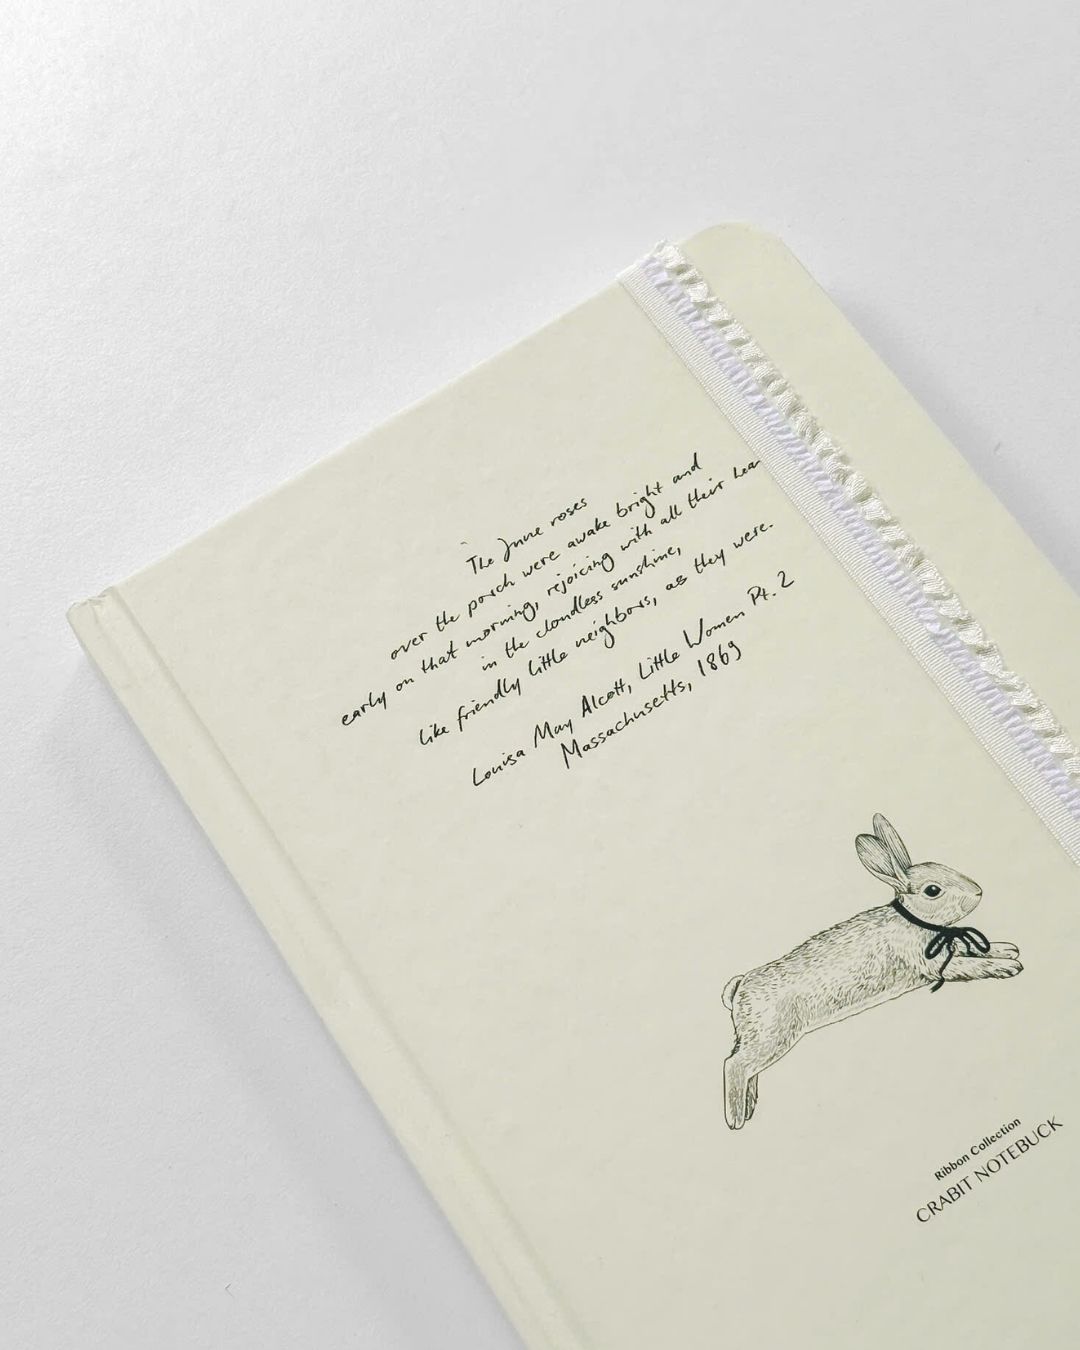 The June roses
over the porch were awake bright and
early on that morning, rejoicing with all their hear
in the cloudless sunshine,
like friendly little neighbors, as they were.
Louisa May Alcott, Little Women Pt. 2
Massachusetts, 1869
Ribbon Collection
CRABIT NOTEBUCK